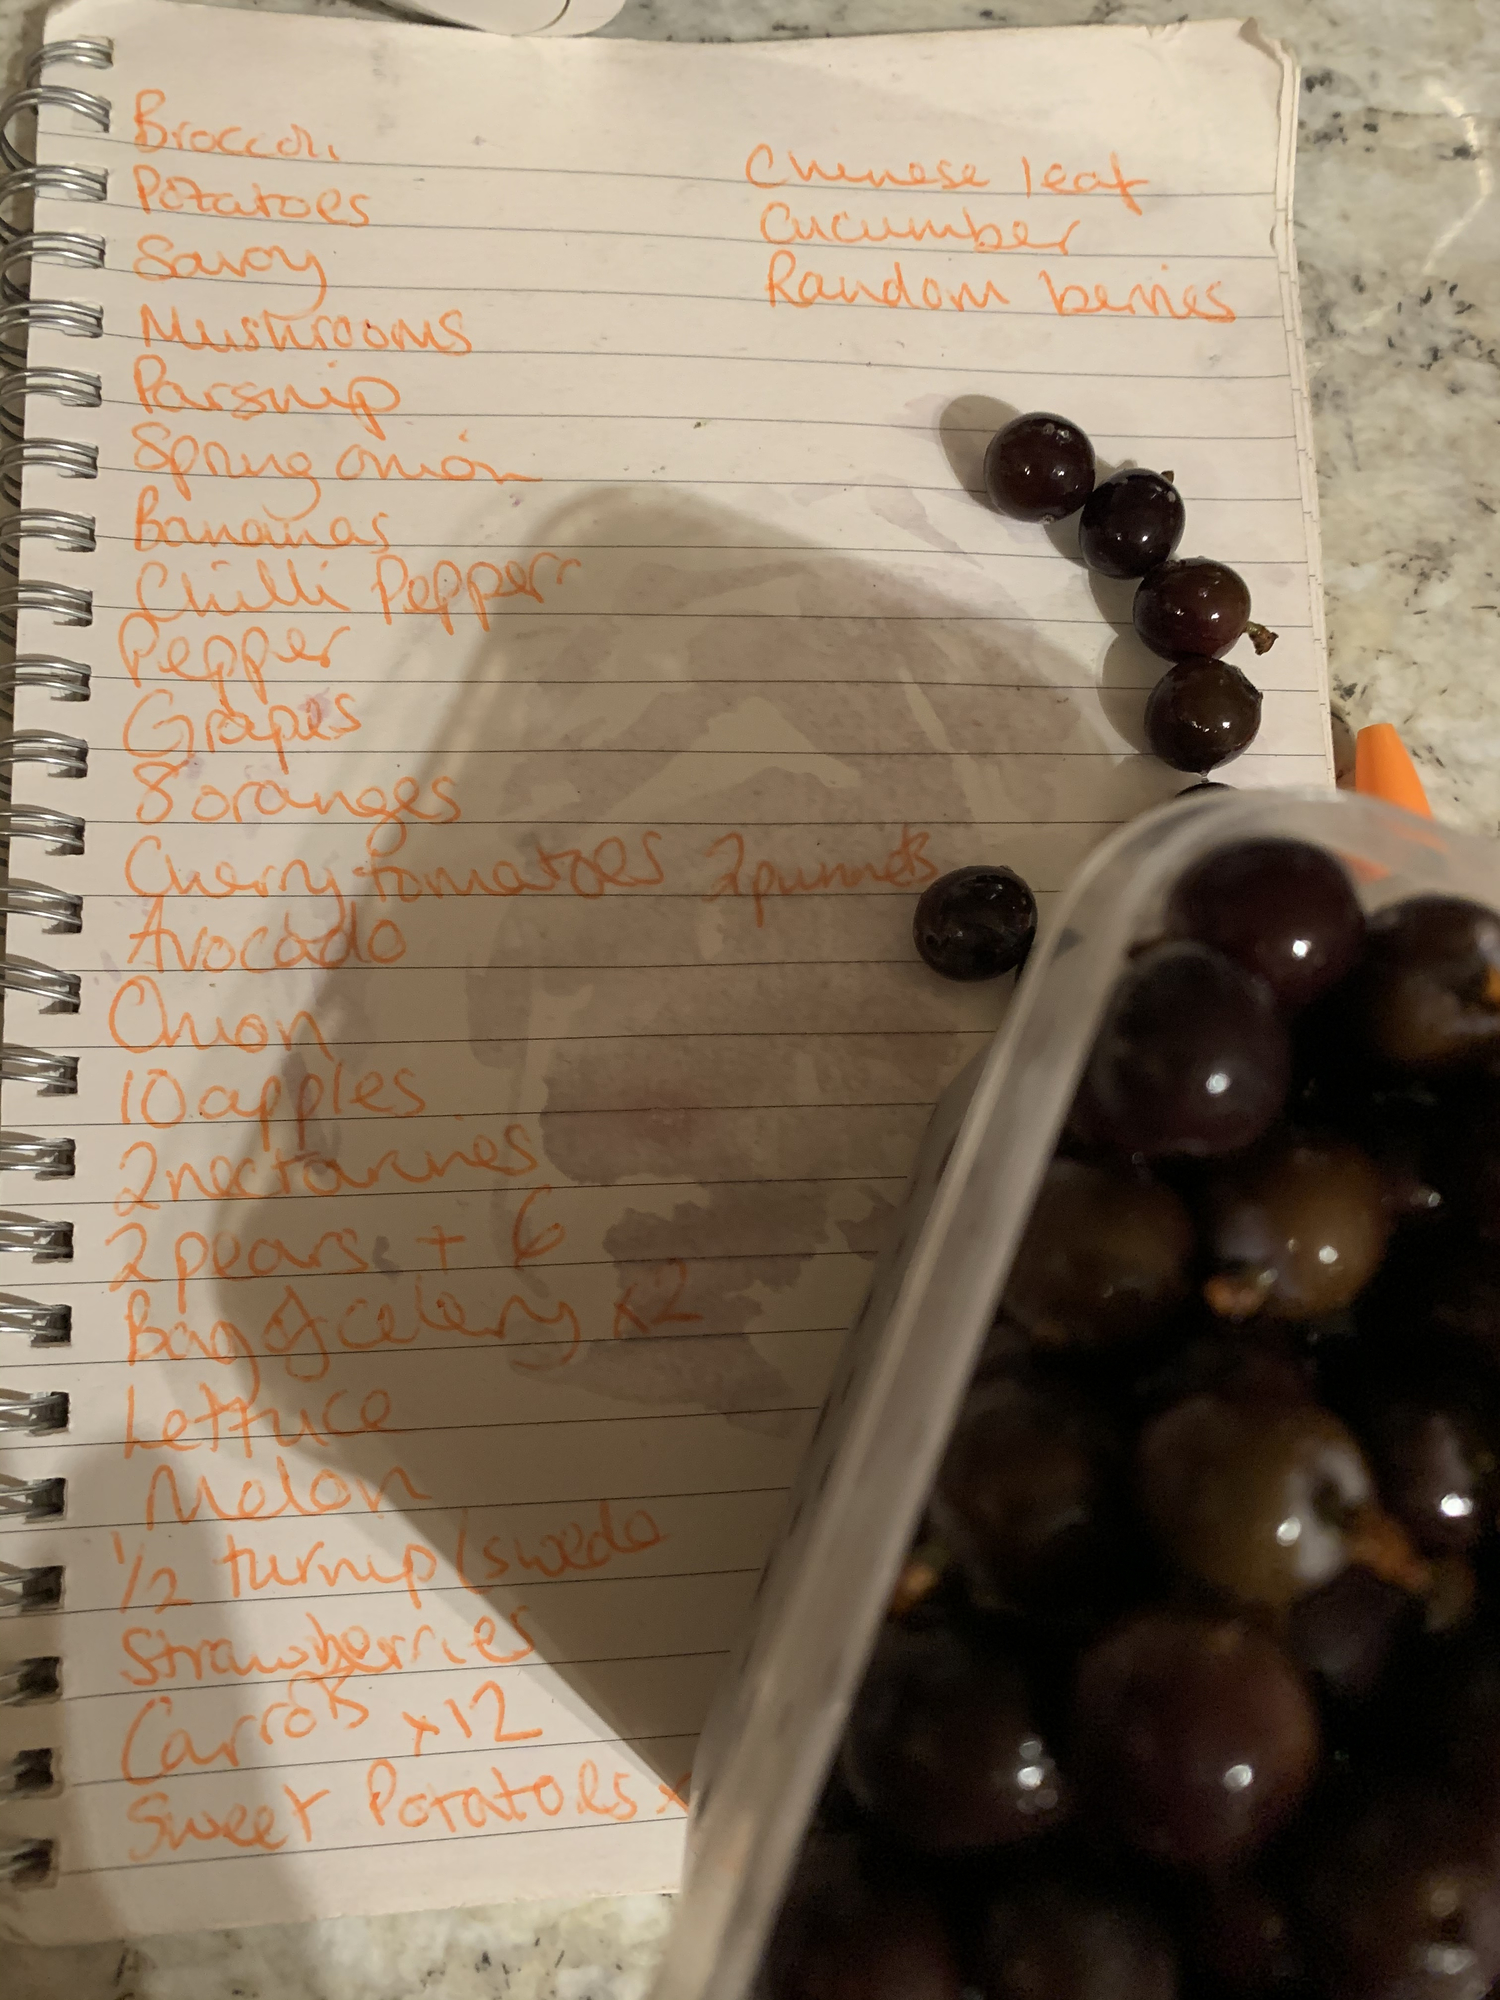 Broccoli
Potatoes
Savoy
Mushrooms
Parsnip
Spring onion
Bananas
Chilli Pepper
Pepper
Grapes
8 oranges
Cherry tomatoes 2 punnets
Avocado
Onion
10 apples
2 nectarines
2 pears + 6
Bag of celery x2
Lettuce
Melon
1/2 turnip/swede
Strawberries
Carrots x12
Sweet Potatoes x
Chinese leaf
Cucumber
Random berries